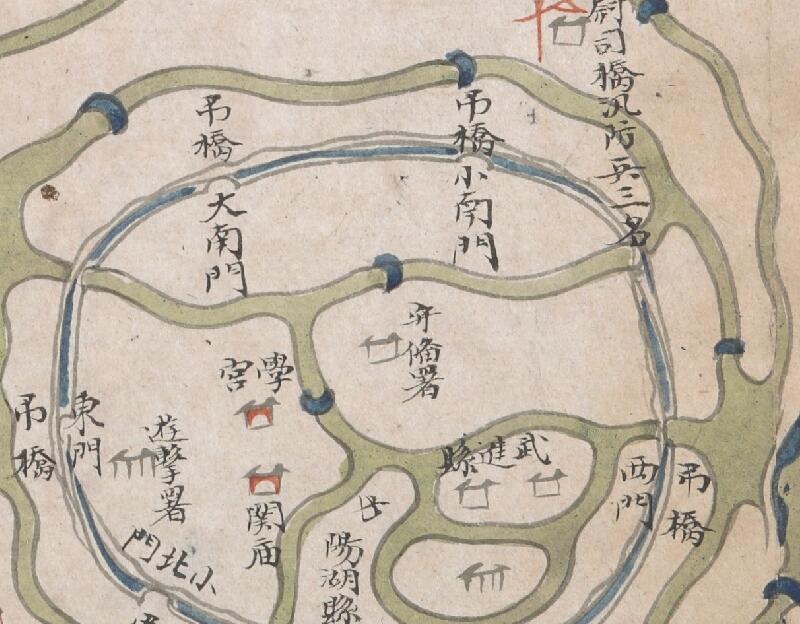 司橋汛防兵三名
吊橋
小南門
吊橋
大南門
守備署
學宮
武進縣
西門
吊橋
東門
吊橋
遊擊署
関庙
陽湖縣
小北門